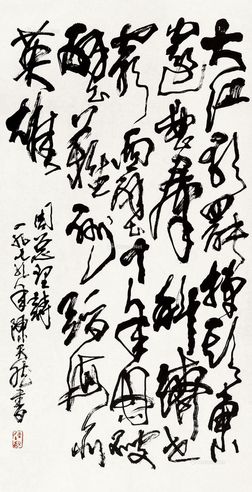 大江歌罷掉頭東
邃密群科濟世
窮面壁十年圖破
壁難酬蹈海亦
英雄
周总理詩
一九七年陳天然書